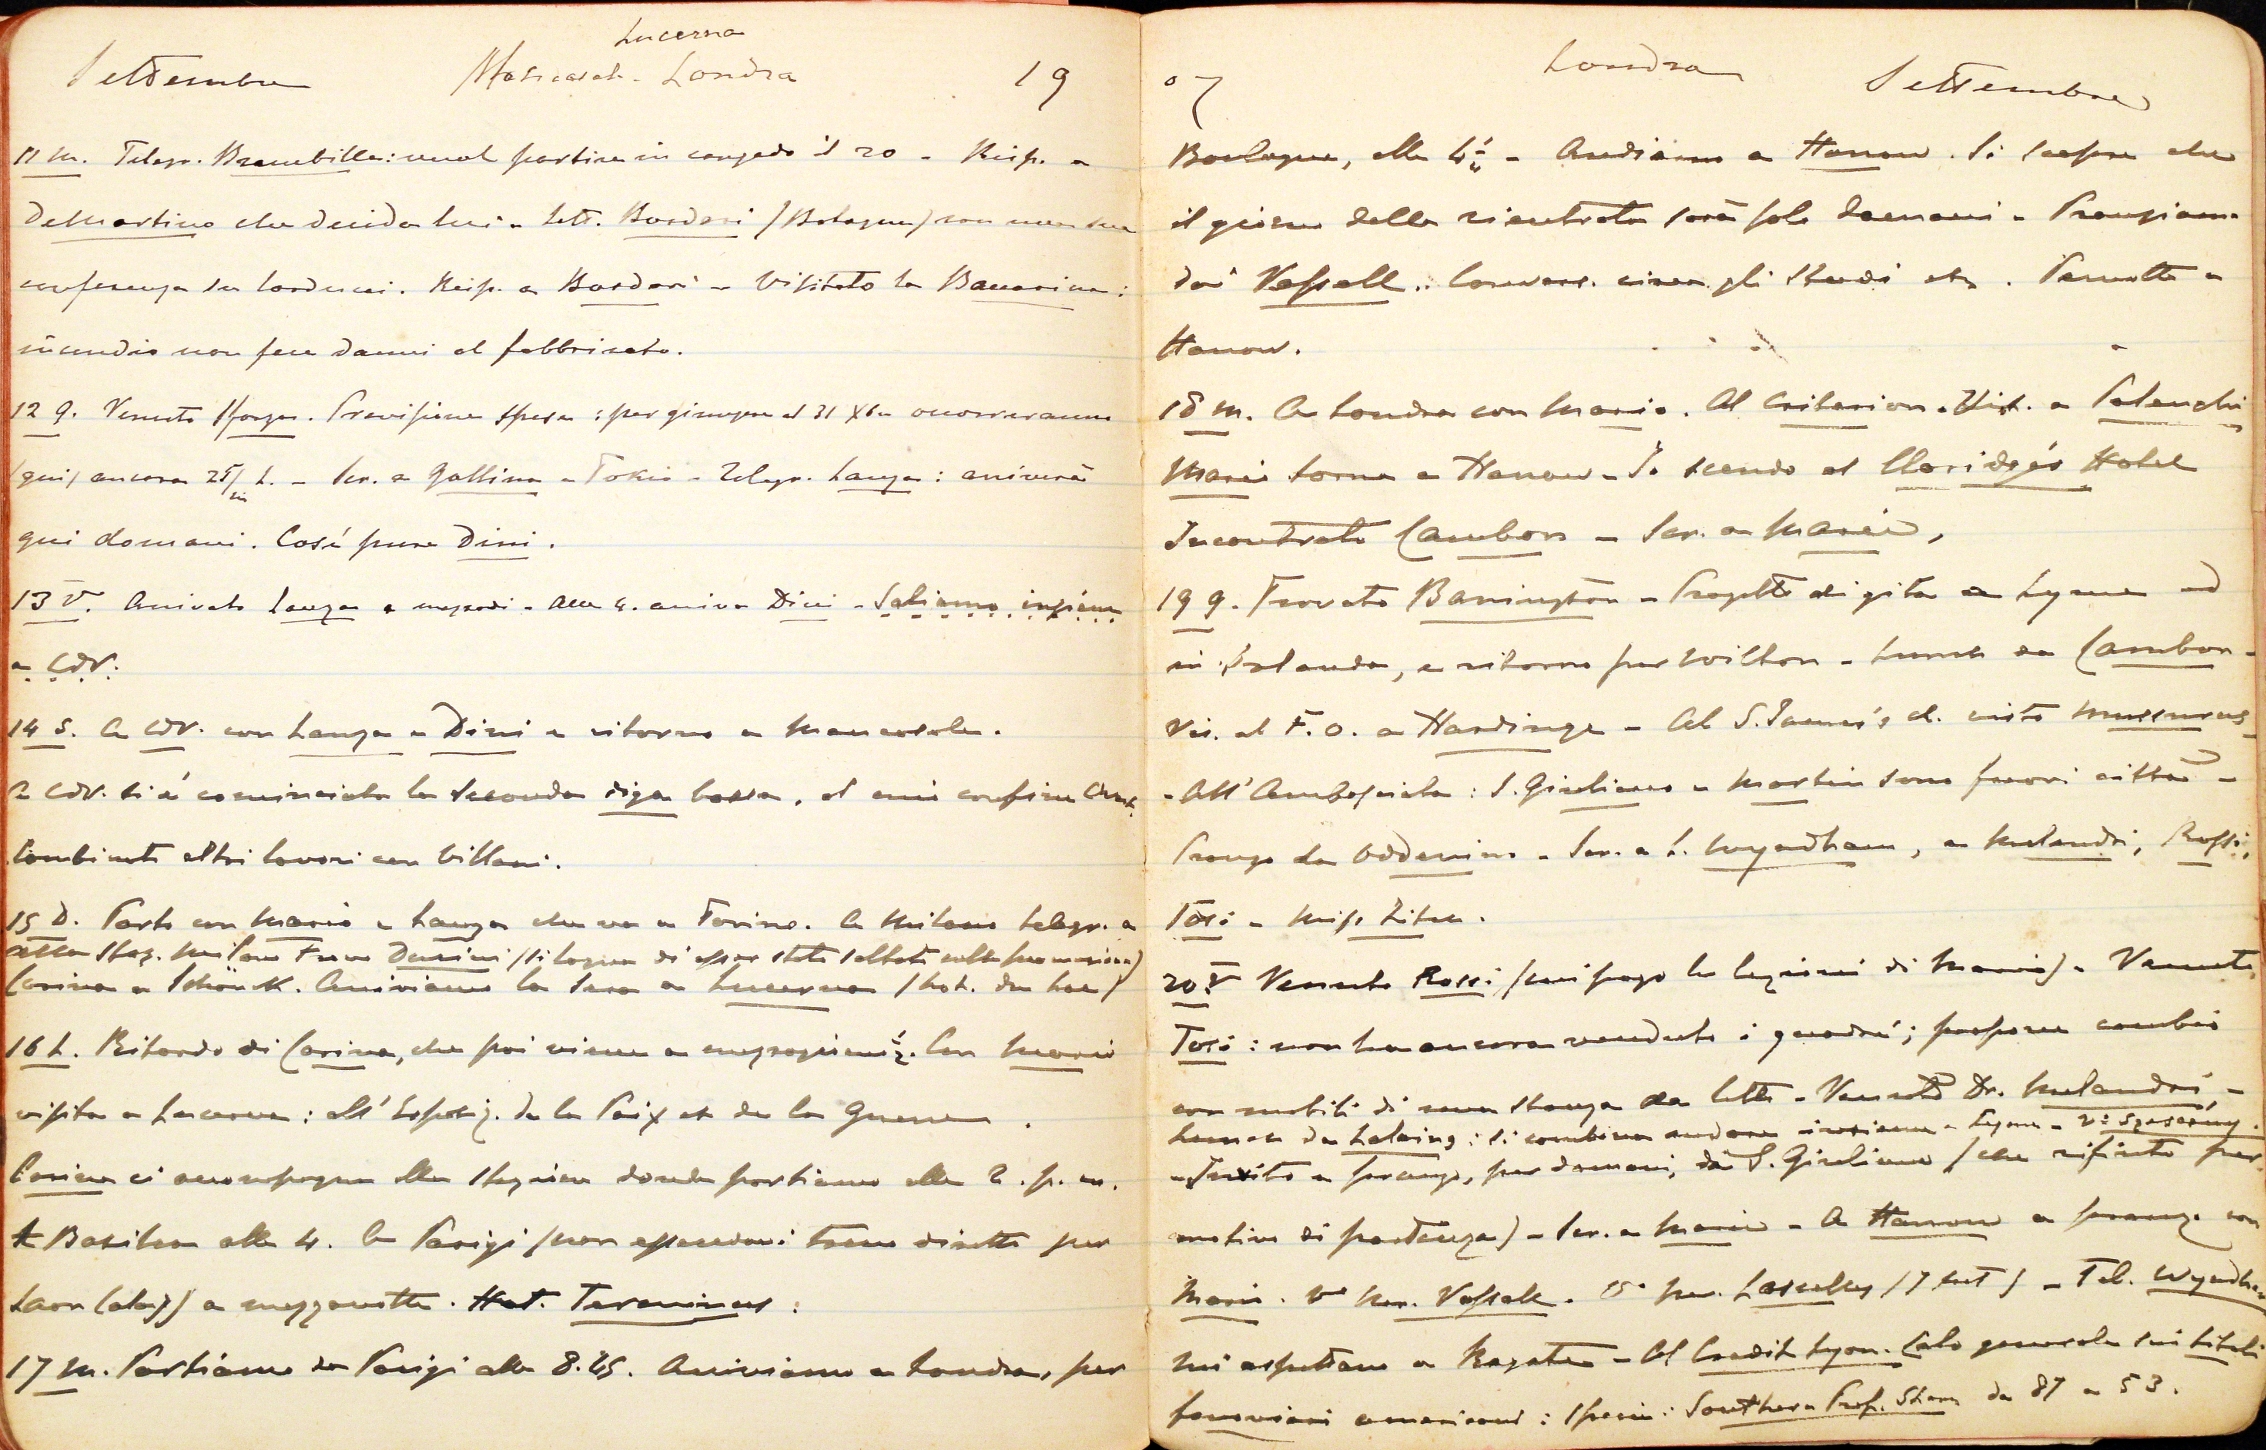 Settembre Lucerna
Londra 19
11 m. Telegr. Brambilla: vuol partire in congedo il 20 - Risp. a
DeMartino che decida lui - Lett. Bordari (Bologna) con una sua
conferenza su Carducci. Risp. a Bordari - Visitato la :
incendio non fece danni al fabbricato.
12 g. Venuto Sforza. Previsione spesa: per giungere al 31 Xbre occorreranno
(qui) ancora 25/m L. - Scr. a Gallina a Tokio - Telegr. Lanza: arriverà
qui domani. Così pure Dini.
13 V. Arrivato Lanza a mezzodì - Alle 4. arriva Dini - Saliamo insieme
a CdV.
14 S. A CdV. con Lanza e Dini e ritorno a .
A CdV. si è cominciata la seconda diga bassa, al confine
Combinati altri lavori con Villani.
15 D. Parto con Mario e Lanza che va a Torino. A Milano telegr. a
alla staz. Milano trovo Durini (si lagna di esser stato saltato nella promozione)
Carina a . Arriviamo la sera a Lucerna (hot. du Lac)
16 L. Ritardo di Carina, che poi viene a mezzogiorno ½. Con Mario
visita a Lucerna: all' Esposiz. de la Paix et de la Guerre.
Carina ci accompagna alla stazione donde partiamo alle 2. p. m.
A Basilea alle 4. A Parigi (non essendovi treno diretto per
Laon Calais) a mezzanotte. Hot. Terminus.
17 M. Partiamo da Parigi alle 8.45. Arriviamo a Londra, per
07 Londra Settembre
Boulogne, alle 4¼ - Andiamo a Harrow. Si scopre che
il giorno della rientrata sarà solo domani - Pranziamo
dai Vassall. Convers. circa gli studi etc. Pernotto a
Harrow.
18 m. A Londra con Mario. Al Criterion. Visit. a
Mario torna a Harrow - Io scendo al Claridge's Hotel
Incontrato Cambon - Scr. a Mario.
19 g. Trovato Barrington - Progetto di gita a Lyme ed
in Irlanda, e ritorno per Wilton - Lunch da Cambon -
Vis. al F.O. a Hardinge - Al S. James's cl. visto Musurus -
- All'Ambasciata: S. Giuliano e Martin sono fuori città -
Pranzo da Oddenino - Scr. a L. Wyndham, a Melandri, Rossi,
Tosi - Miss .
20 V Venuto Rossi (cui pago le lezioni di Mario) - Venuto
Tosi: non ha ancora venduto i quadri; propone cambio
con mobili di una stanza da letto - Venuto Dr. Melandri -
Lunch da : si combina andare insieme a Lyme -
- Invito a pranzo, per domani, da S. Giuliano (che rifiuto per
motivo di partenza) - Scr. a Mario - A Harrow a pranzo con
Mario. Vo Mr. Vassall. Mr. Lascelles - Tel. Wyndham
mi aspettano a - Al Credit Lyon. Calo generale sui titoli
ferroviari americani: specie: Southern Pref. Shares da 87 a 53.